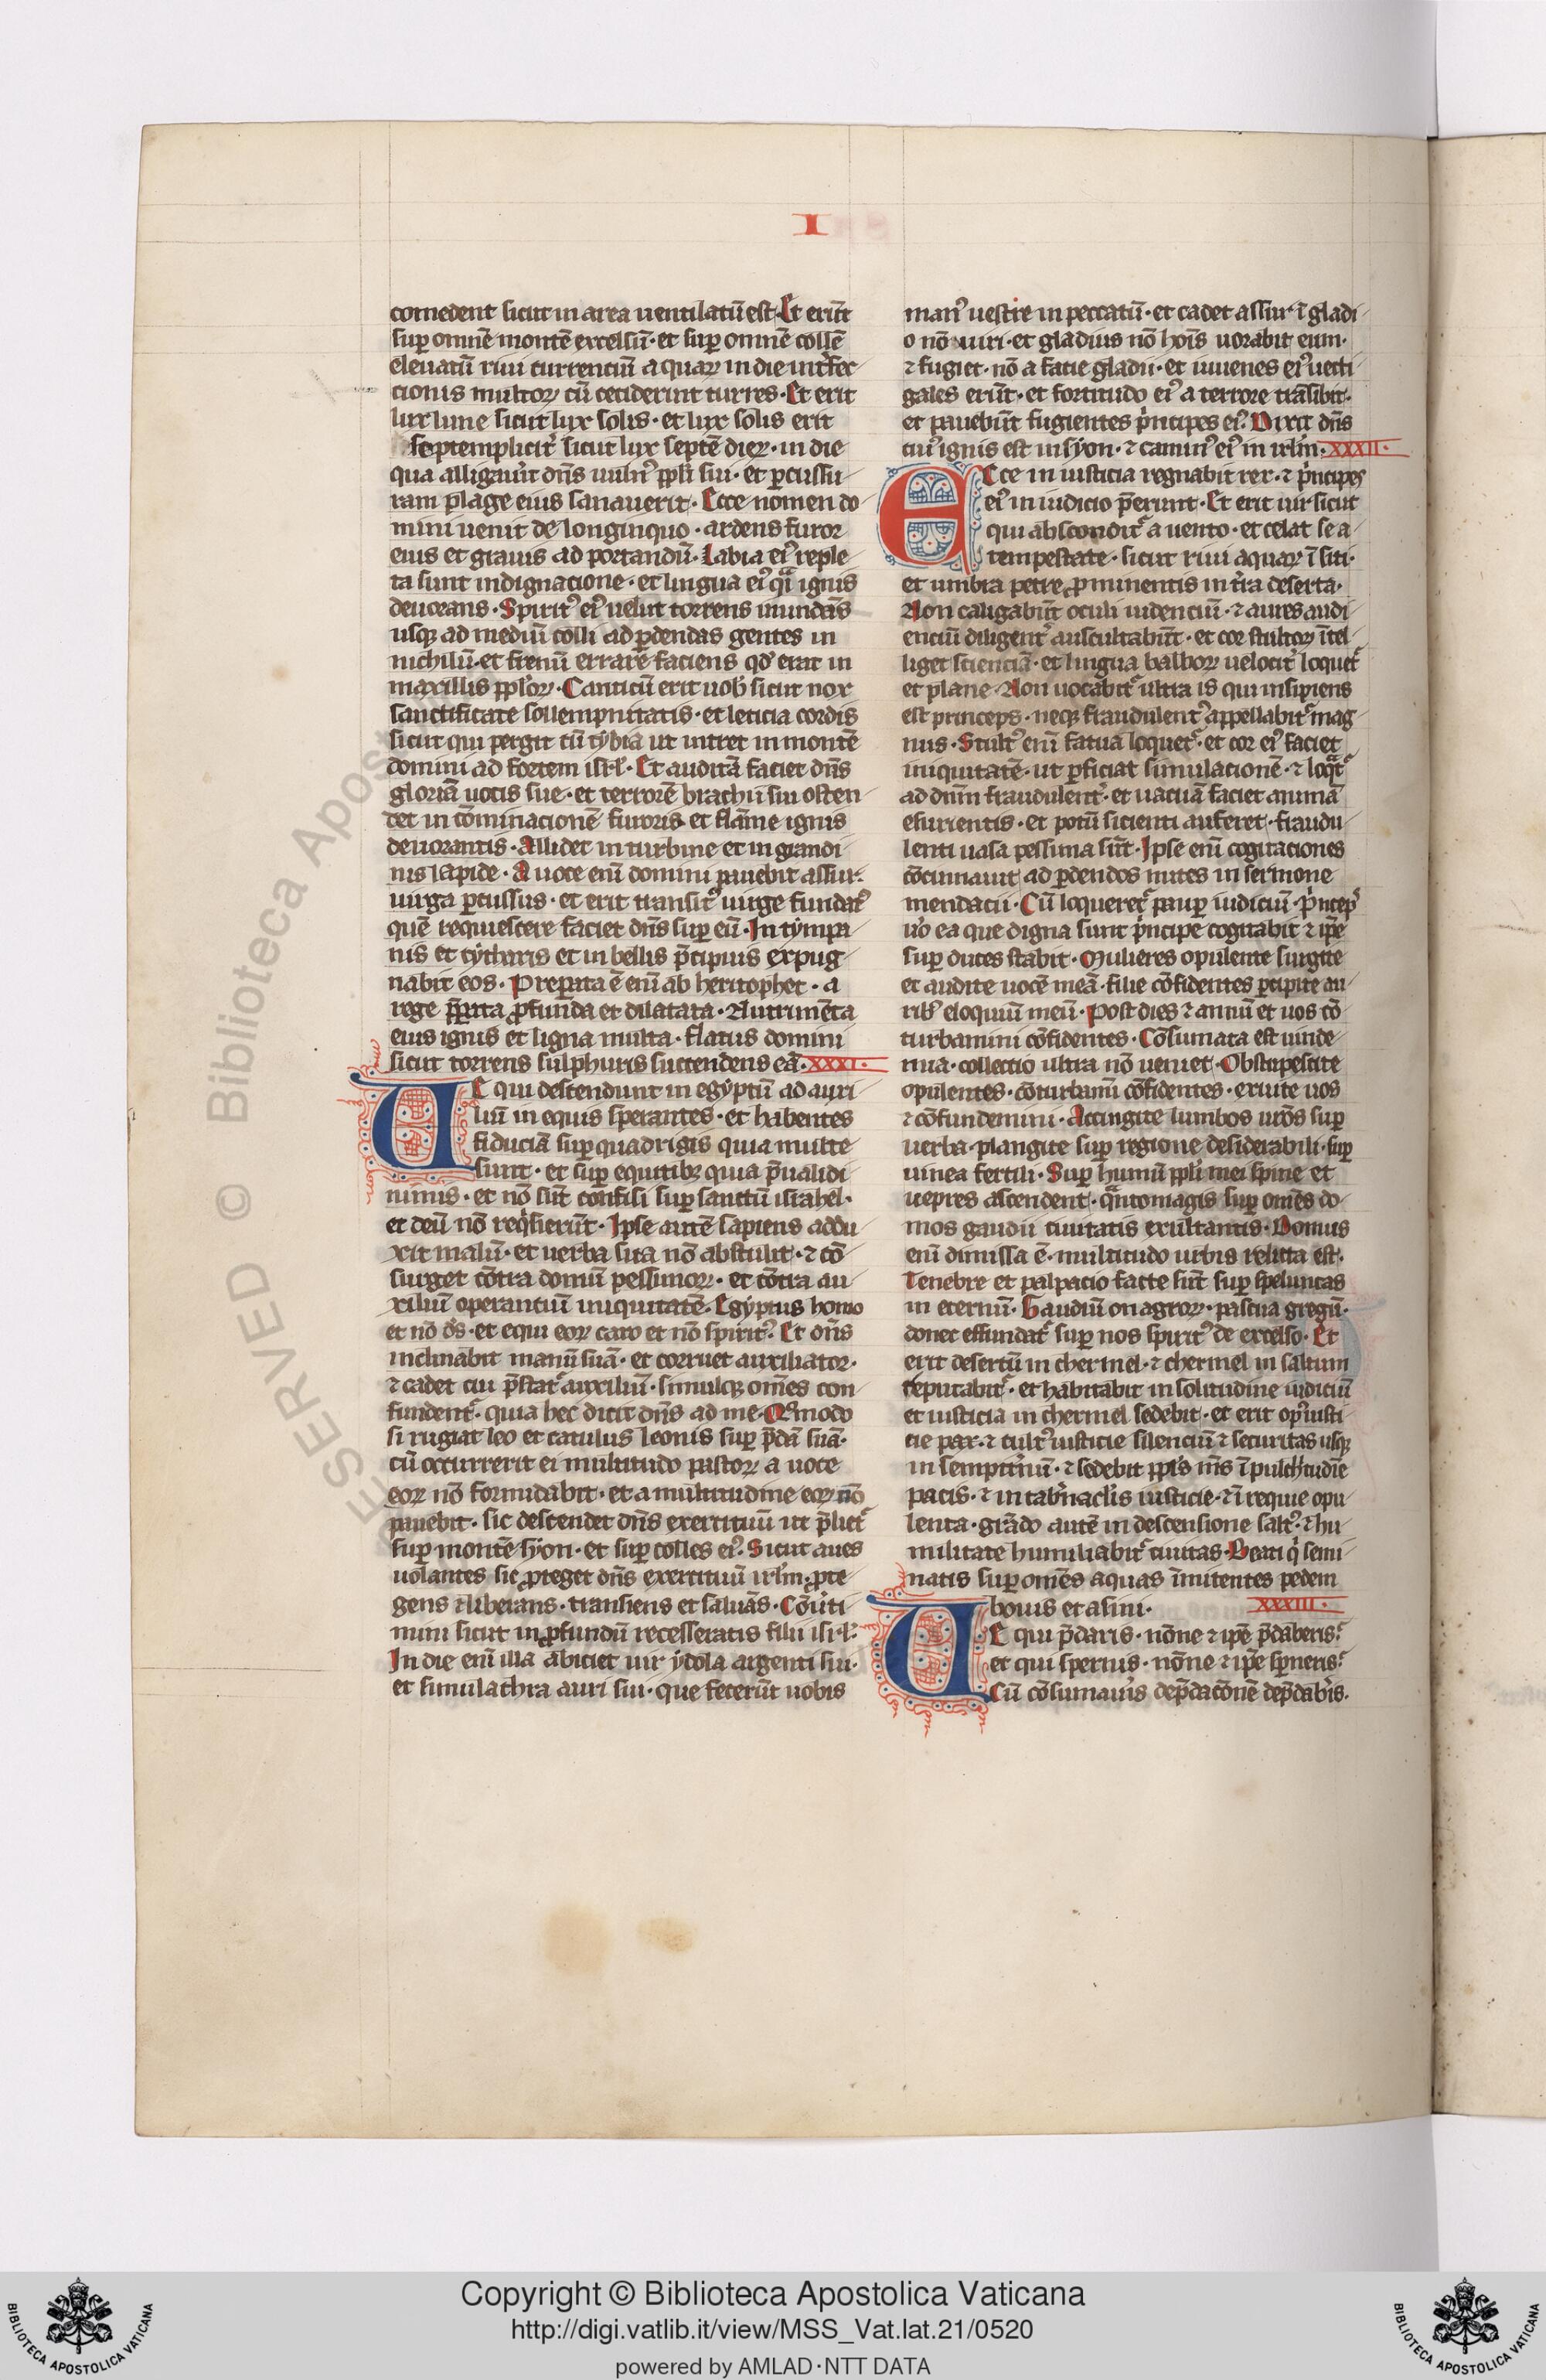 I
comedent sicut in area uentilatū est. Et erūt
sup̱ omnē montē excelsū · et sup̱ omnē collē
eleuatū riui currenciū aquaꝝ in die int̾fec
cionis multoꝝ cū ceciderint turres · Et erit
lux lune sicut lux solis · et lux solis erit
septemplicit̾ sicut lux septē dieꝝ · in die
qua alligau̾it dn̄s uuln᾽ ppl̾i sui · et ꝑcussu
ram plage eius sanauerit · Ecce nomen do
mini uenit de longinquo · ardens furor
eius et grauis ad portandū · Labia ei᾽ reple
ta sunt indignacione · et lingua ei᾽ qͣi ignis
deuorans · Spirit᾽ ei᾽ uelut torrens inundās
usqꝫ ad mediū colli ad ꝑdendas gentes in
nichilū · et frenū errare faciens qd̾ erat in
maxillis ppl̾oꝝ · Canticū erit uob̾ sicut nox
sanctificate sollempnitatis · et leticia cordis
sicut qui pergit cū tybia ut intret in montē
domini ad fortem isrl̾ · Et auditā faciet dn̄s
gloriā uocis sue · et terrorē brachii sui osten
det in cōminacionē furoris et flāme ignis
deuorantis · Allidet in turbine et in grandi
nis lapide · A uoce enī domini pauebit assur ·
uirga ꝑcussus · et erit transit᾽ uirge fundat᾽
quē requiescere faciet dn̄s sup̱ eū · In tympa
nis et cytharis et in bellis p̄cipuis expug
nabit eos · Preparata ē enī ab heri tophet · a
rege p̄parata ꝓfunda et dilatata · Nutrimēta
eius ignis et ligna multa · flatus domini
sicut torrens sulphuris succendens eā · XXXI ·
UE qui descendunt in egyptū ad auxi
liū in equis sperantes · et habentes
fiduciā sup̱ quadrigis quia multe
sunt · et sup̱ equitibꝫ quia p̄ualidi
nimis · et nō sūt confisi sup̱ sanctū israhel ·
et deū nō req̾sierūt · Ipse autē sapiens addu
xit malū · et uerba sua nō abstulit · ⁊ cō
surget cōtra domū pessimoꝝ · et cōtra au
xiliū operantiū iniquitatē · Egyptus homo
et nō ds̄ · et equi eoꝝ caro et nō spirit᾽ · Et dn̄s
inclinabit manū suā · et corruet auxiliator ·
⁊ cadet cui p̄stat᾽ auxiliū · simulqꝫ om̄es con
fundent᾽ · quia hec dicit dn̄s ad me · Qͦmodo
si rugiat leo et catulus leonis sup̱ p̄dā suā ·
cū occurrerit ei multitudo pastoꝝ a uoce
eoꝝ nō formidabit · et a multitudine eoꝝ nō
pauebit · sic descendet dn̄s exercituū ut p̄liet᾽
sup̱ montē syon · et sup̱ colles ei᾽ · Sicut aues
uolantes sic ꝓteget dn̄s exercituū irl̾m · ꝓte
gens ⁊ liberans · transiens et saluās · Cōu̾ti
mini sicut in ꝓfundū recesseratis filii isrl̾ ·
In die enī illa abiciet uir ydola argenti sui ·
et simulachra auri sui · que fecerūt uobis
man᾽ uestre in peccatū · et cadet assur ī gladi
o nō uiri · et gladius nō hoīs uorabit eum ·
⁊ fugiet · nō a facie gladii · et iuuenes ei᾽ uecti
gales erūt · et fortitudo ei᾽ a terrore trāsibit ·
et pauebūt fugientes p̾ncipes ei᾽ · Dixit dn̄s
cui᾽ ignis est in syon · ⁊ camin᾽ ei᾽ in irl̾m · XXXII ·
ECce in iusticia regnabit rex · ⁊ p̾ncipes
ei᾽ in iudicio p̄erunt · Et erit uir sicut
qui abscondit᾽ a uento · et celat se a
tempestate · sicut riui aquaꝝ ī siti ·
et umbra petre ꝓminentis in t̾ra deserta ·
Non caligabūt oculi uidenciū · ⁊ aures audi
enciū diligent᾽ auscultabūt · et cor stultoꝝ ītel
liget scienciā · et lingua balboꝝ uelocit̾ loquet᾽
et plane · Non uocabit᾽ ultra is qui insipiens
est princeps · neqꝫ fraudulent᾽ appellabit᾽ mag
nus · Stult᾽ enī fatua loquet᾽ · et cor ei᾽ faciet
iniquitatē · ut ꝑficiat simulacionē · ⁊ loqͣt᾽
ad dn̄m fraudulent᾽ · et uacuā faciet animā
esurientis · et potū sicienti auferet · fraudu
lenti uasa pessima sūt · Ipse enī cogitaciones
cōcinnauit ad ꝑdendos mites in sermone
mendacii · Cū loqueret᾽ paup̱ iudiciū · P̾ncep᾽
u̾o ea que digna sunt p̾ncipe cogitabit ⁊ ip̄e
sup̱ duces stabit · Mulieres opulente surgite
et audite uocē meā · filie cōfidentes ꝑcipite au
rib᾽ eloquiū meū · Post dies ⁊ annū et uos cō
turbamini cōfidentes · Cōsumata est uinde
mia · collectio ultra nō ueniet · Obstupescite
opulentes · cōturbamī cōfidentes · exuite uos
⁊ cōfundemini · Accingite lumbos ur̄os sup̱
uerba · plangite sup̱ regione desiderabili · sup̱
uinea fertili · Sup̱ humū ppl̾i mei spine et
uepres ascendent · qͣntomagis sup̱ om̄es do
mos gaudii ciuitatis exultantis · Domus
enī dimissa ē · multitudo urbis relicta est ·
Tenebre et palpacio facte sūt sup̱ speluncas
in eternū · Gaudiū onagroꝝ · pascua gregū ·
donec effundat᾽ sup̱ nos spirit᾽ de excelso · Et
erit desertū in chermel · ⁊ chermel in saltum
reputabit᾽ · et habitabit in solitudine iudiciū
et iusticia in chermel sedebit · et erit op᾽ iusti
cie pax · ⁊ cult᾽ iusticie silenciū ⁊ securitas usqꝫ
in sempit̾nū · ⁊ sedebit ppl̾s m̄s ī pulch̾tudīe
pacis · ⁊ in tab̾nacl̾is iusticie · ⁊ ī requie opu
lenta · grādo autē in descensione salt᾽ · ⁊ hu
militate humiliabit᾽ ciuitas · Beati q̾ semi
natis sup̱ om̄es aquas īmitentes pedem
bouis et asini · XXXIII ·
UE qui p̄daris · nōne ⁊ ip̄e p̄daberis ·
et qui spernis · nōne ⁊ ip̄e sp̱neris ·
Cū cōsumau̾is dep̄dacōnē dep̄dab̾is ·
RESERVED © Biblioteca Apost
Copyright © Biblioteca Apostolica Vaticana
http://digi.vatlib.it/view/MSS_Vat.lat.21/0520
powered by AMLAD·NTT DATA
BIBLIOTECA APOSTOLICA VATICANA
BIBLIOTECA APOSTOLICA VATICANA